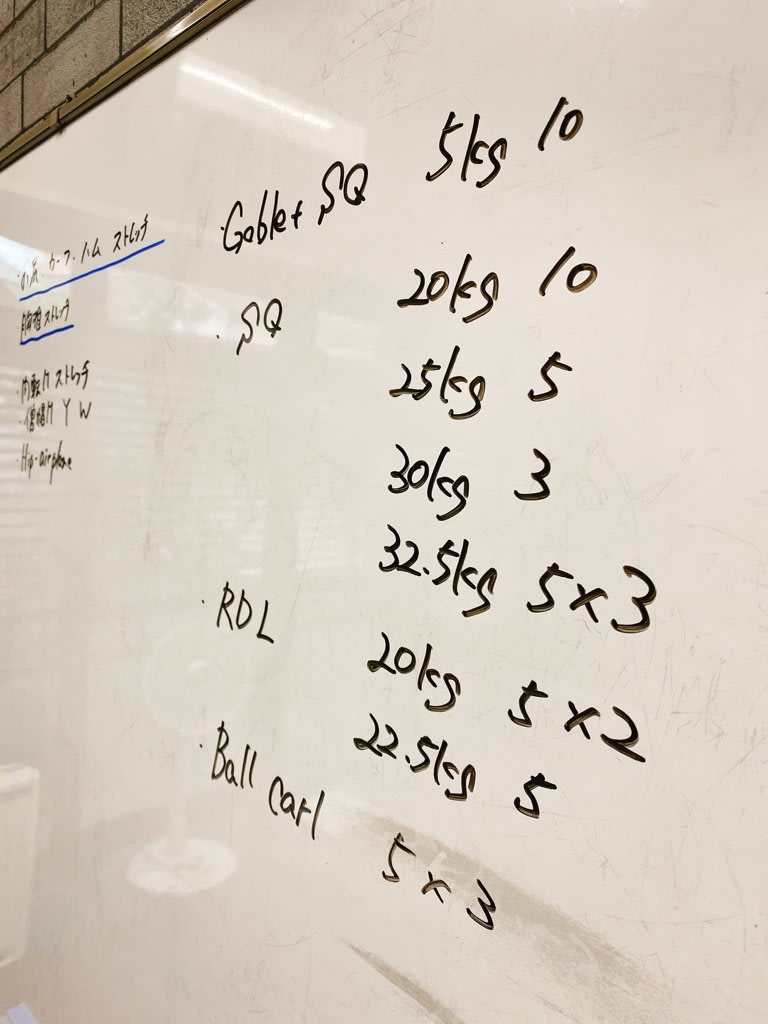 カーフ・ハム ストレッチ
ストレッチ
内転筋 ストレッチ
・僧帽筋 Y W
・Hip-airplane
・Goblet SQ 5kg 10
・SQ 20kg 10
25kg 5
30kg 3
32.5kg 5×3
・RDL 20kg 5×2
22.5kg 5
・Ball Carl 5×3